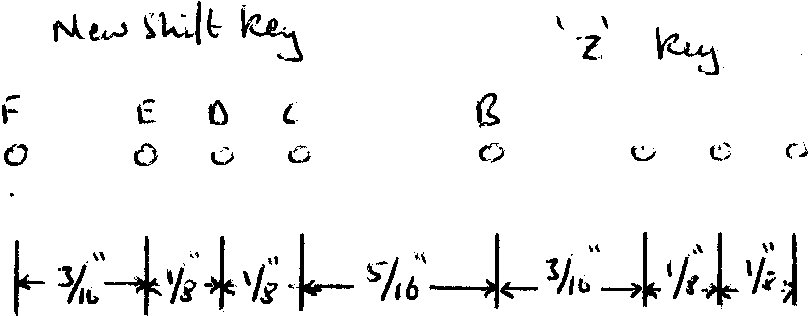 New Shift Key 'Z' Key
F E D C B
3/16" 1/8" 1/8" 5/16" 3/16" 1/8" 1/8"